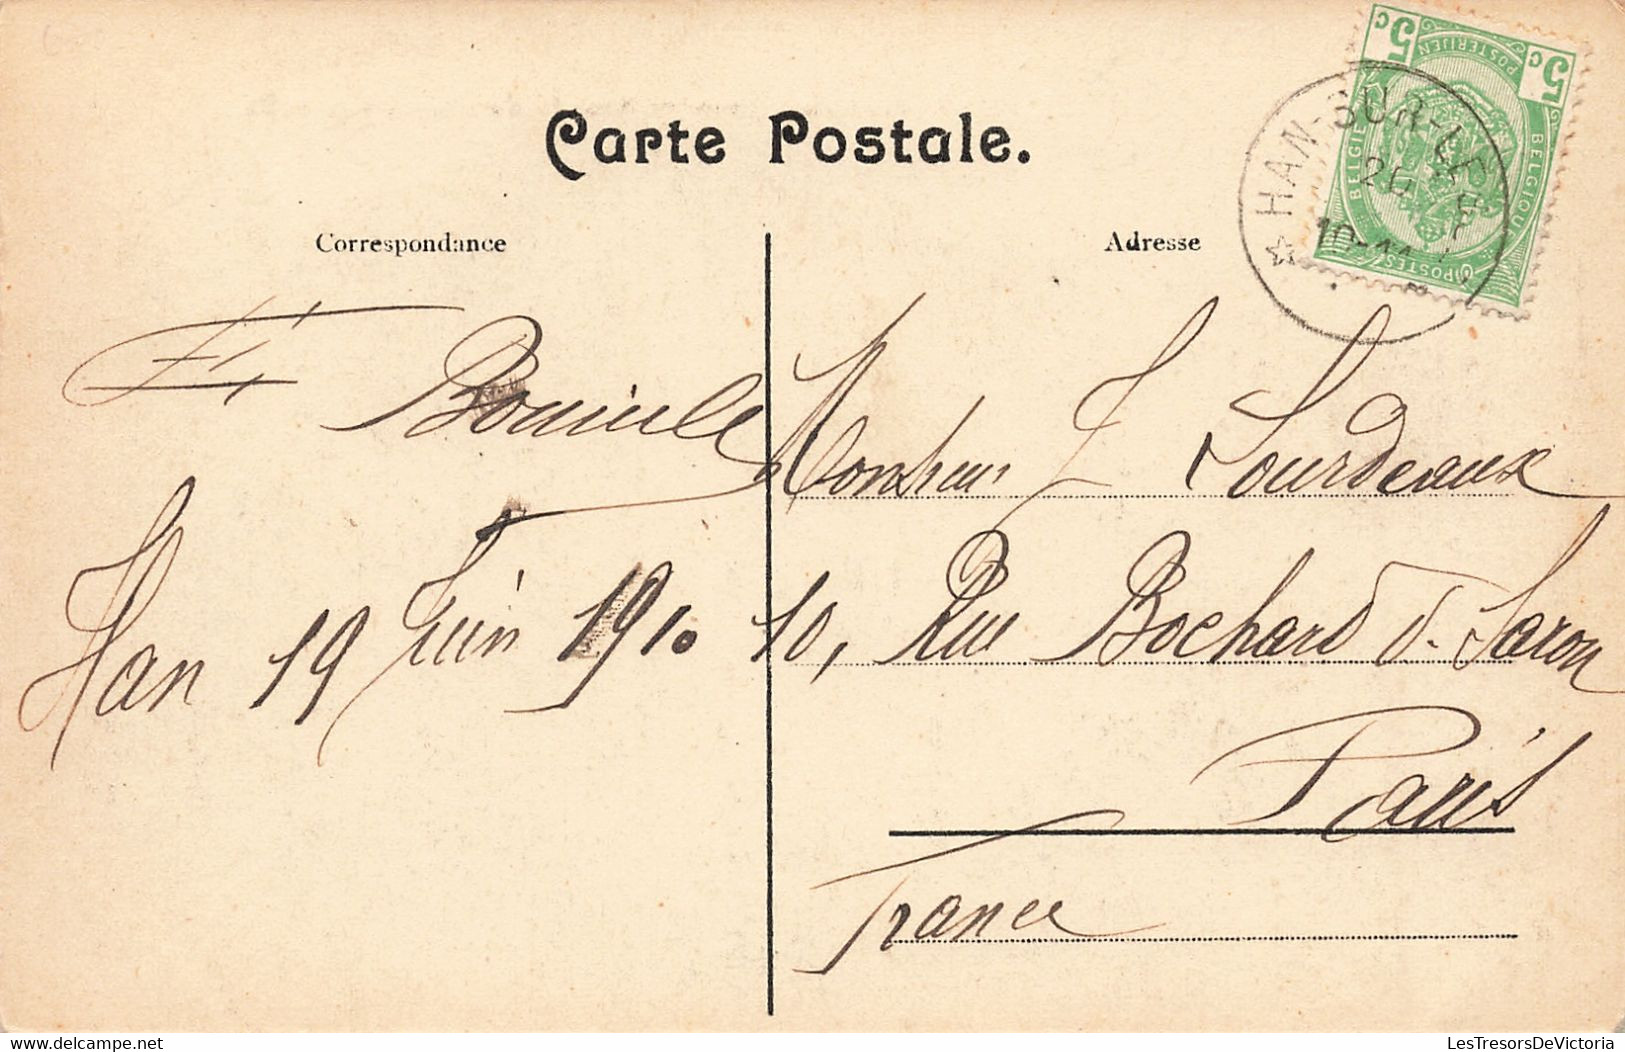 Carte Postale.
Correspondance
Adresse
5c 5c
POSTERIJEN
BELGIE BELGIQUE
POSTES
HAN-SUR-LE
20
10-11
Monsieur J Lourdeaux
10, Rue Bochard d. Saron
Paris
France
Han 19 Juin 1910
LesTresorsDeVictoria